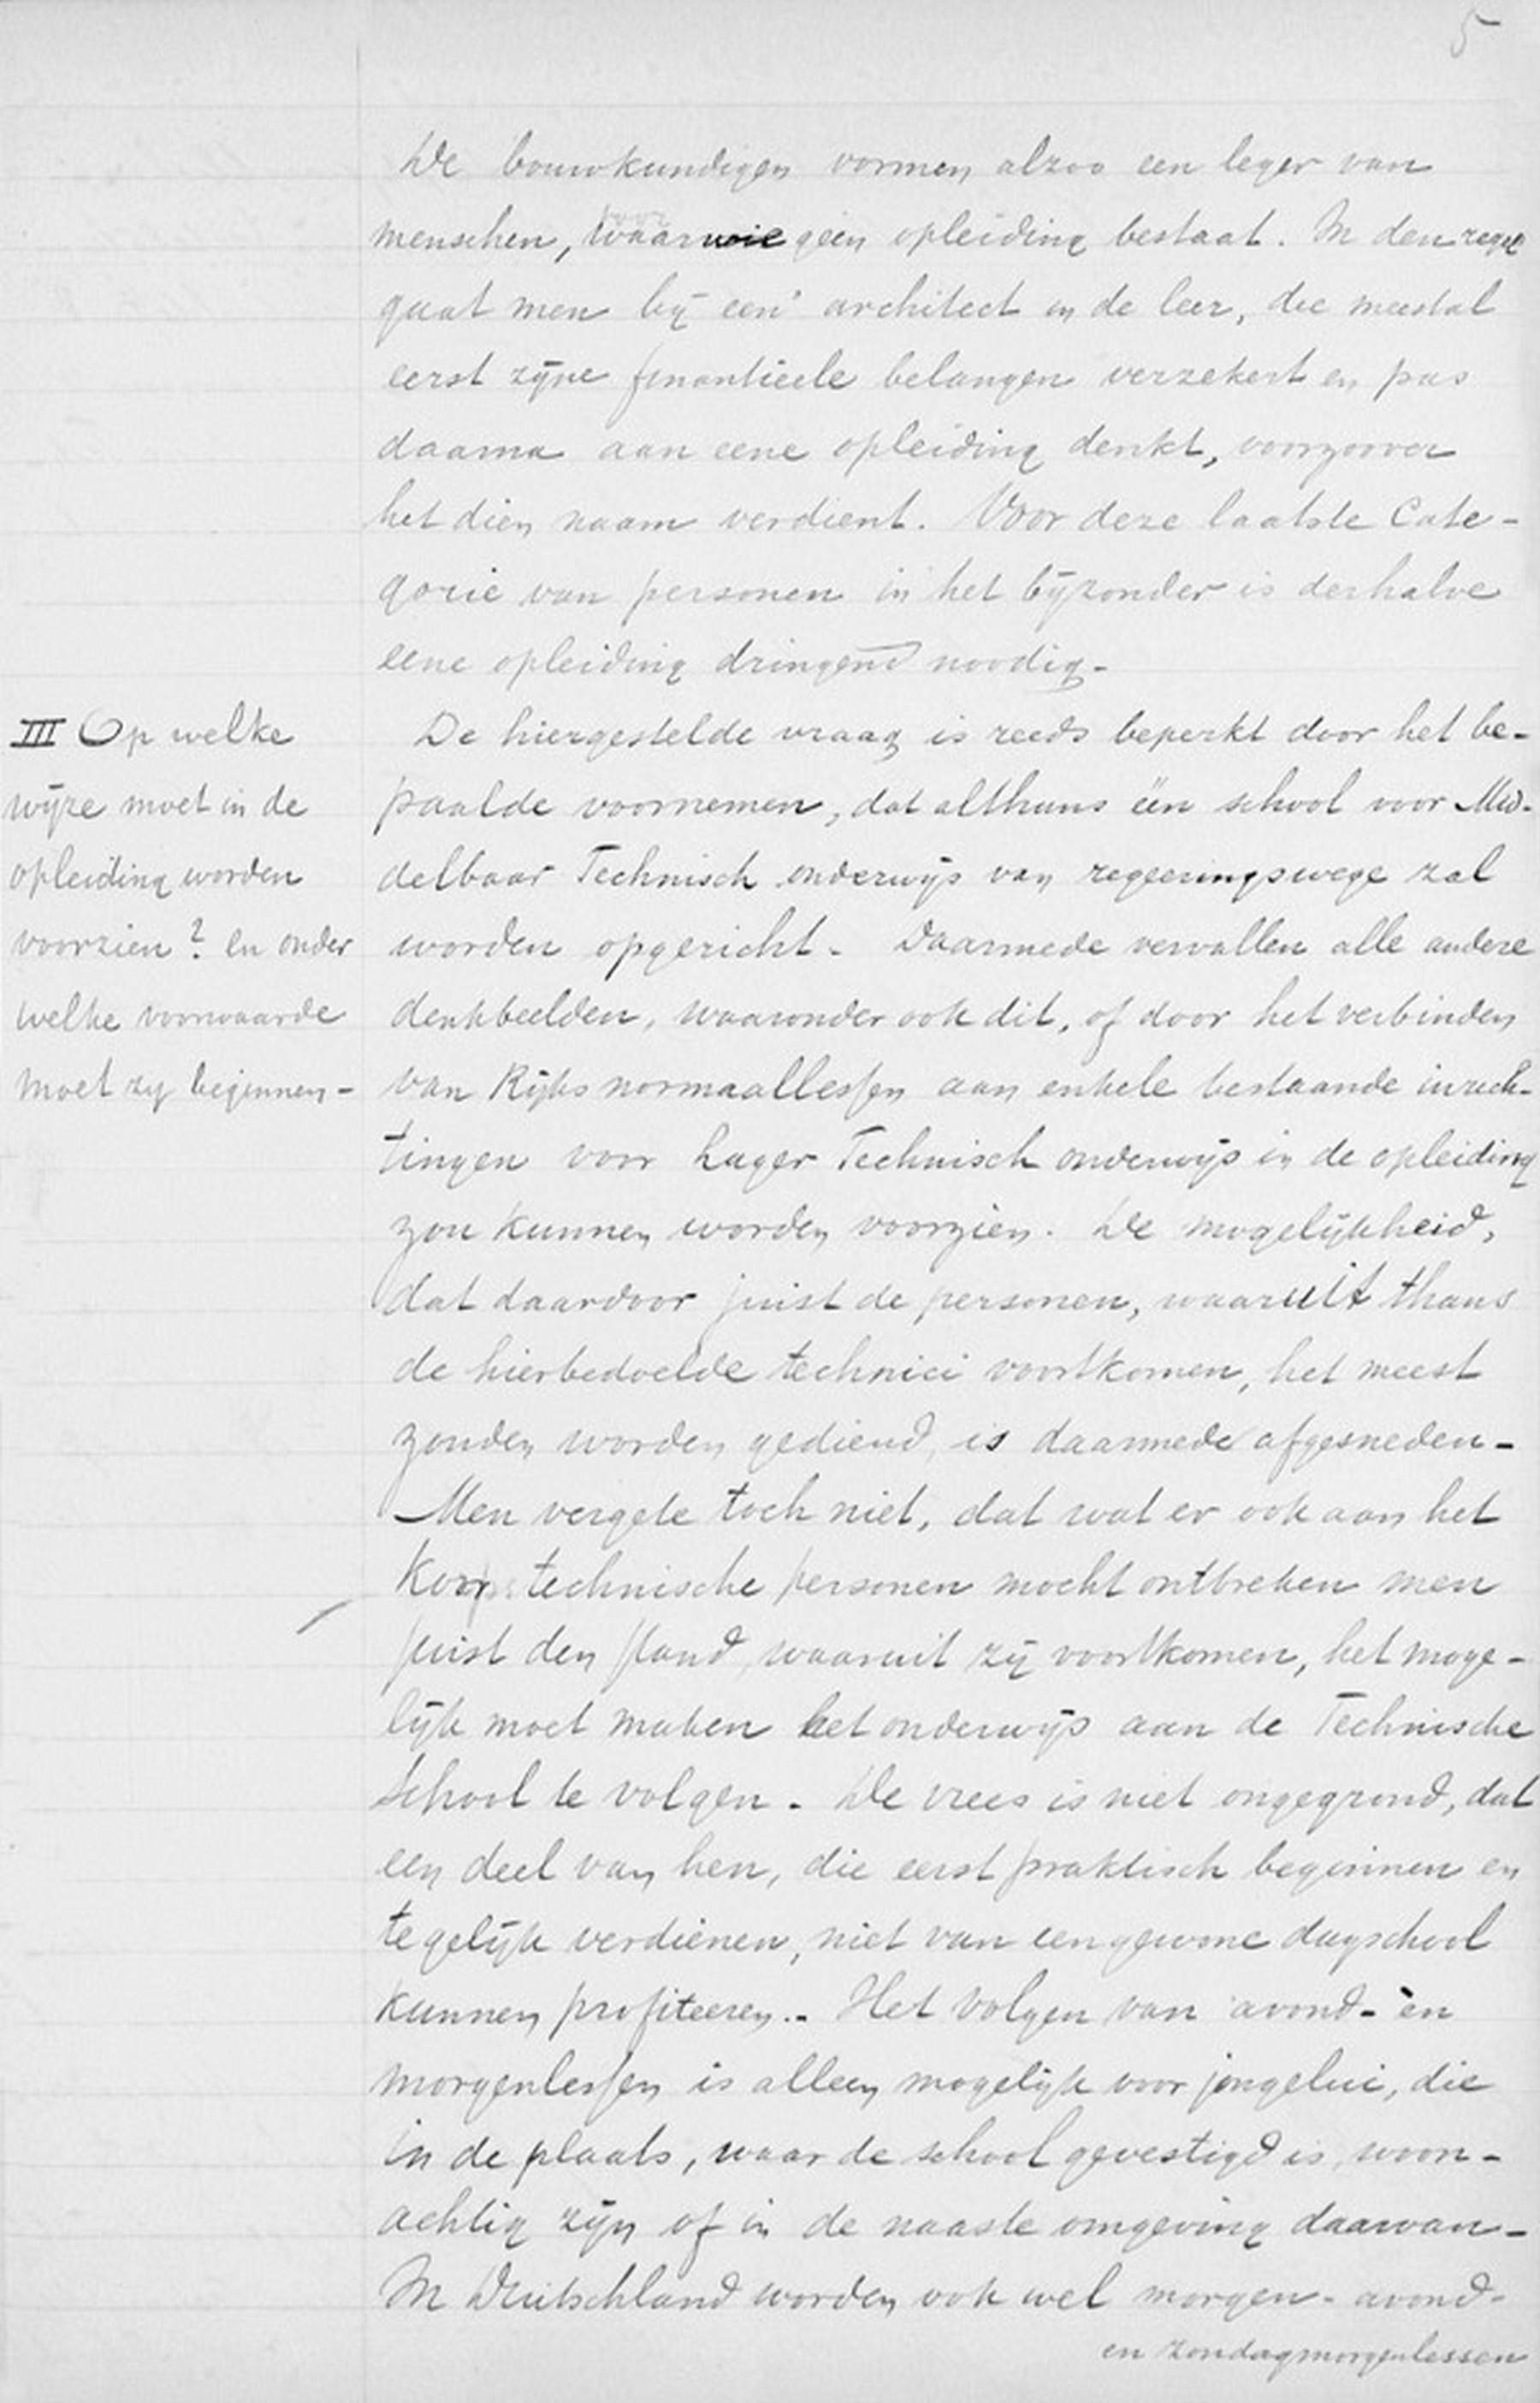 5
De bouwkundigen vormen alzoo een leger van
menschen, waarvoor geen opleiding bestaat. In den regel
gaat men bij een architect in de leer, die meestal
eerst zijne finantieele belangen verzekert en pas
daarna aan eene opleiding denkt, voorzoover
het dien naam verdient. Voor deze laatste Cate-
gorie van personen in het bijzonder is derhalve
eene opleiding dringend noodig -
III Op welke
wijze moet in de
opleiding worden
voorzien? en onder
welke voorwaarde
moet zij beginnen -
De hiergestelde vraag is reeds beperkt door het be-
paalde voornemen, dat althans één school voor Mid-
delbaar Technisch onderwijs van regeeringswege zal
worden opgericht - Daarmede vervallen alle andere
denkbeelden, waaronder ook dit, of door het verbinden
van Rijks normaallessen aan enkele bestaande inrich-
tingen voor Lager Technisch onderwijs in de opleiding
zou kunnen worden voorzien. De mogelijkheid,
dat daardoor juist de personen, waaruit thans
de hierbedoelde technici voortkomen, het meest
zouden worden gediend, is daarmede afgesneden -
Men vergete toch niet, dat wat er ook aan het
Korps technische personen mocht ontbreken men
juist den stand, waaruit zij voortkomen, het moge-
lijk moet maken het onderwijs aan de Technische
School te volgen - De vrees is niet ongegrond, dat
een deel van hen, die eerst praktisch beginnen en
tegelijk verdienen, niet van een gewone dagschool
kunnen profiteeren. - Het volgen van avond- en
morgenlessen is alleen mogelijk voor jongelui, die
in de plaats, waar de school gevestigd is, woon-
achtig zijn of in de naaste omgeving daarvan -
In Deutschland worden ook wel morgen- avond-
en zondagmorgenlessen